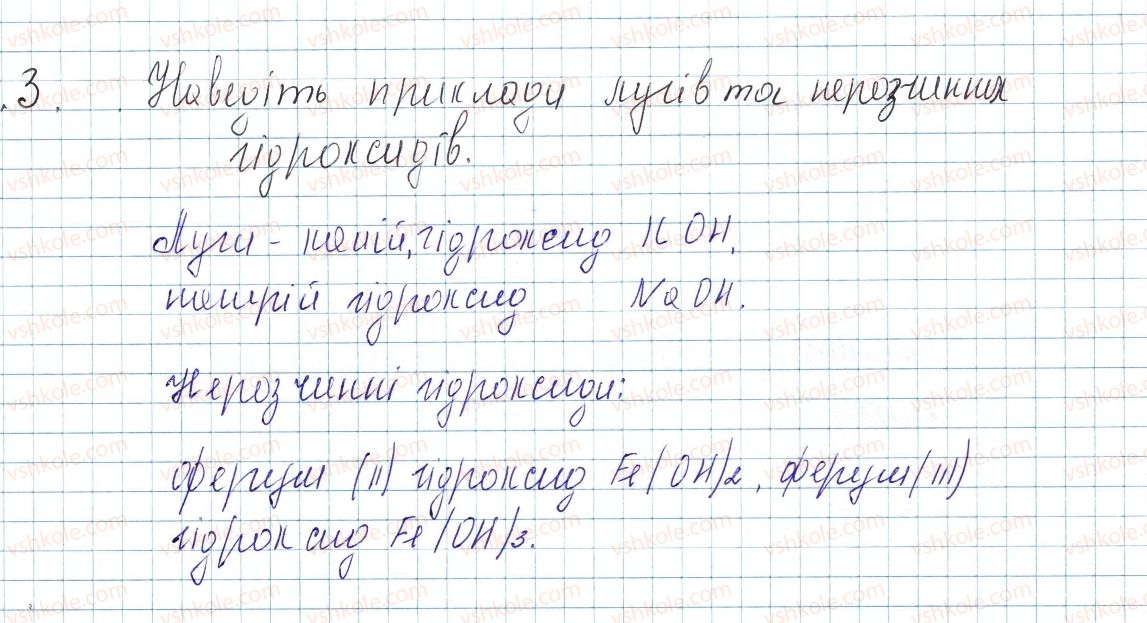 .3. Наведіть приклади лугів та нерозчинних
гідроксидів.
Луги - калій гідроксид KOH,
натрій гідроксид NaOH.
Нерозчинні гідроксиди:
ферум (II) гідроксид Fe(OH)2, ферум (III)
гідроксид Fe(OH)3.